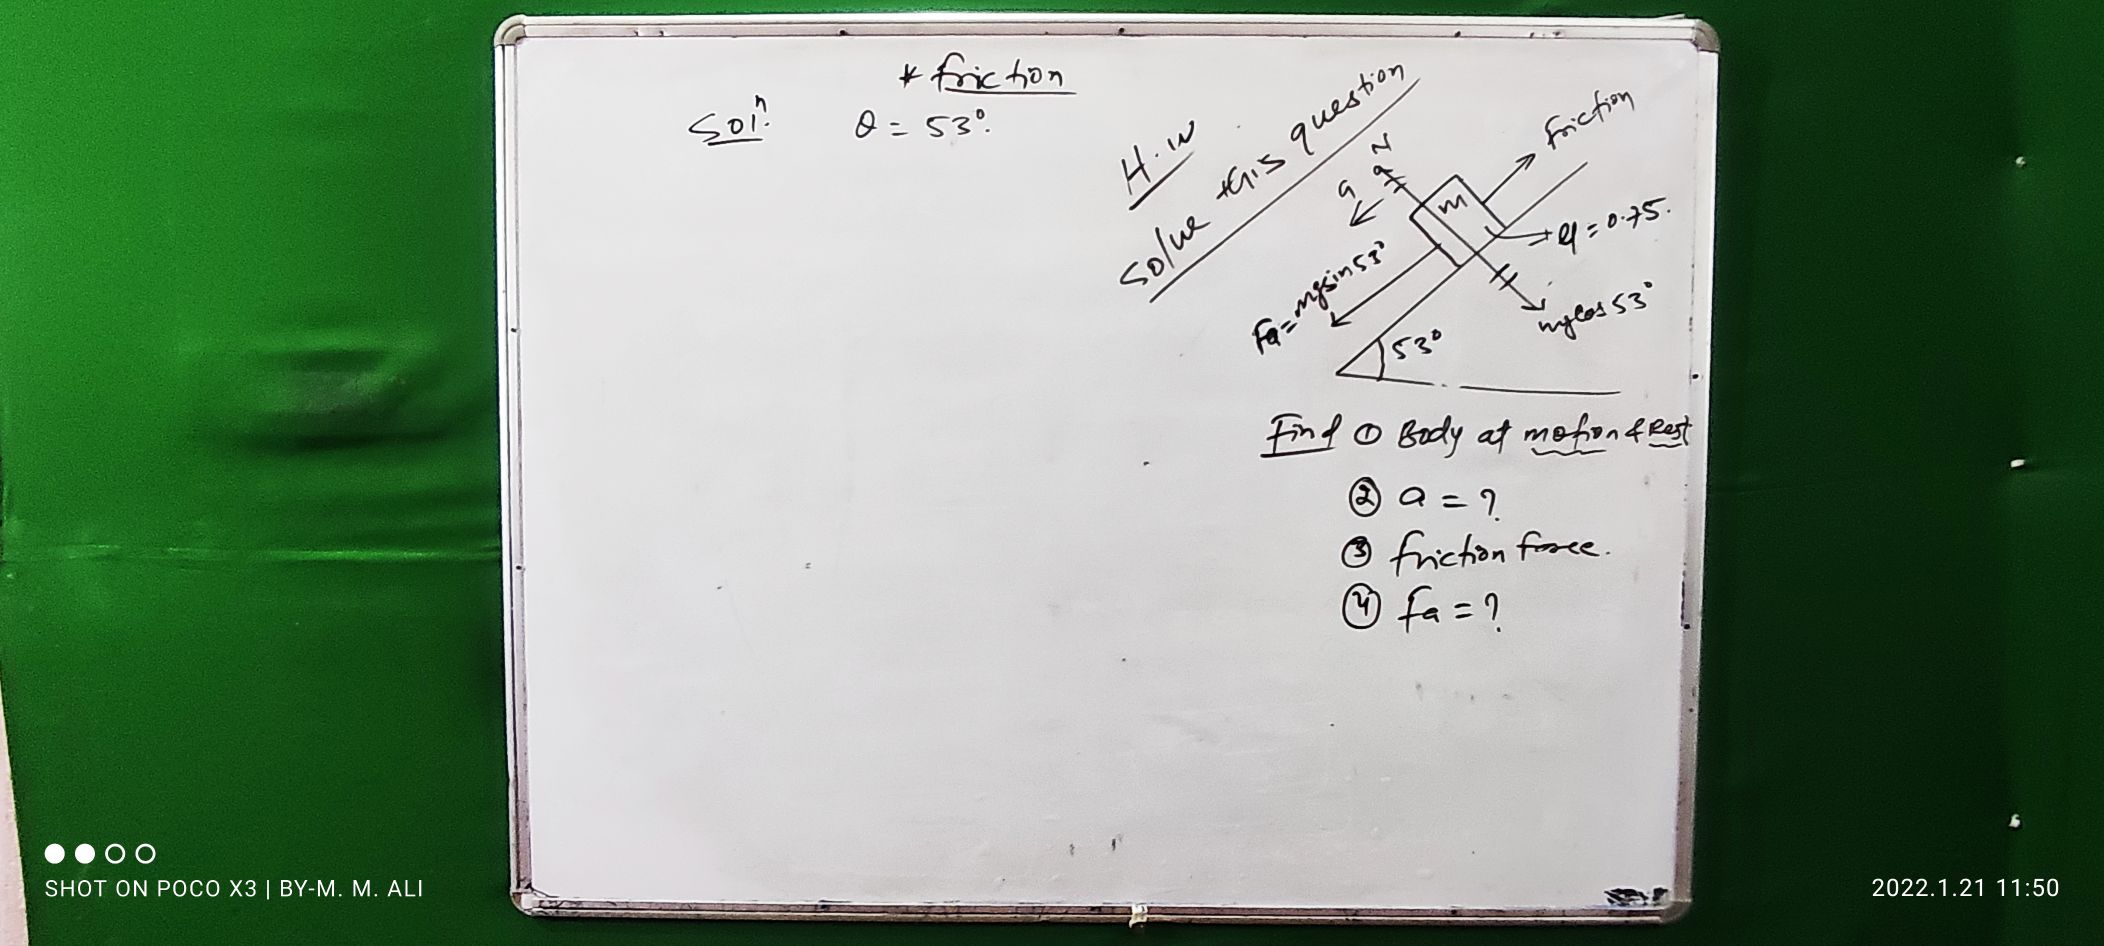 * Friction
Solⁿ. θ = 53°.
H.W
Solve this question
Friction
N
a
m
= 0.75.
Fa = mgsin53°
mgcos53°
53°
Find ① Body at motion & Rest
② a = ?
③ friction force.
④ Fa = ?
SHOT ON POCO X3 | BY-M. M. ALI
2022.1.21 11:50